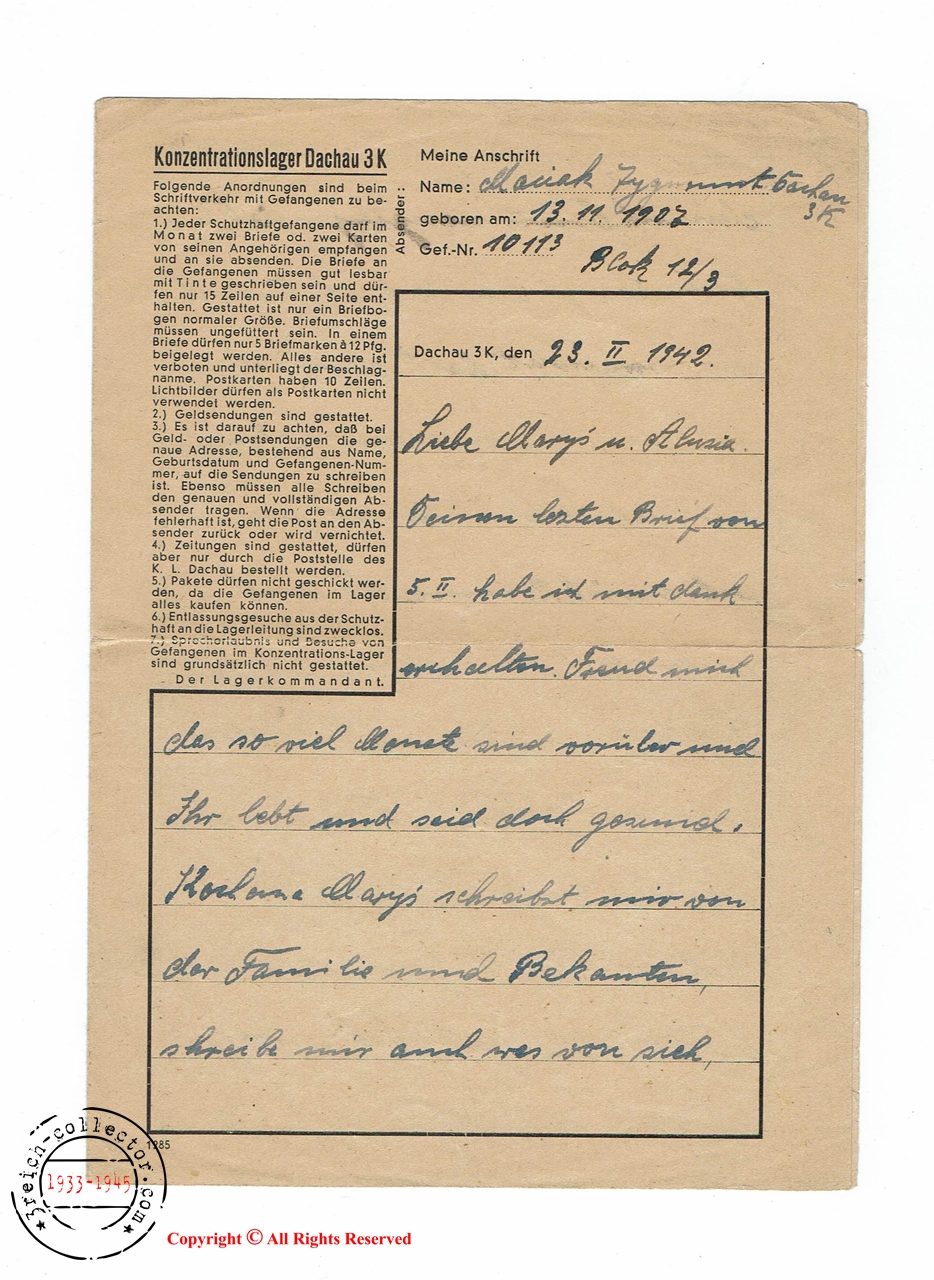 Konzentrationslager Dachau 3 K
Folgende Anordnungen sind beim
Schriftverkehr mit Gefangenen zu be-
achten:
1.) Jeder Schutzhaftgefangene darf im
Monat zwei Briefe od. zwei Karten
von seinen Angehörigen empfangen
und an sie absenden. Die Briefe an
die Gefangenen müssen gut lesbar
mit Tinte geschrieben sein und dür-
fen nur 15 Zeilen auf einer Seite ent-
halten. Gestattet ist nur ein Briefbo-
gen normaler Größe. Briefumschläge
müssen ungefüttert sein. In einem
Briefe dürfen nur 5 Briefmarken à 12 Pfg.
beigelegt werden. Alles andere ist
verboten und unterliegt der Beschlag-
nanme. Postkarten haben 10 Zeilen.
Lichtbilder dürfen als Postkarten nicht
verwendet werden.
2.) Geldsendungen sind gestattet.
3.) Es ist darauf zu achten, daß bei
Geld- oder Postsendungen die ge-
naue Adresse, bestehend aus Name,
Geburtsdatum und Gefangenen-Num-
mer, auf die Sendungen zu schreiben
ist. Ebenso müssen alle Schreiben
den genauen und vollständigen Ab-
sender tragen. Wenn die Adresse
fehlerhaft ist, geht die Post an den Ab-
sender zurück oder wird vernichtet.
4.) Zeitungen sind gestattet, dürfen
aber nur durch die Poststelle des
K. L. Dachau bestellt werden.
5.) Pakete dürfen nicht geschickt wer-
den, da die Gefangenen im Lager
alles kaufen können.
6.) Entlassungsgesuche aus der Schutz-
haft an die Lagerleitung sind zwecklos.
7.) Sprecherlaubnis und Besuche von
Gefangenen im Konzentrations-Lager
sind grundsätzlich nicht gestattet.
Der Lagerkommandant.
Absender:
Meine Anschrift
Name: Maciak Zygmunt Dachau
3K
geboren am: 13. 11. 1907
Gef.-Nr. 10113
Blok 12/3
Dachau 3 K, den 23. II 1942.
Liebe Maryś u. Alusia.
Deinen lezten Brief von
5. II. habe ich mit dank
erhalten. Freud mich
das so viel Monate sind vorüber und
Ihr lebt und seid doch gesund.
Kochana Maryś schreibst mir von
der Familie und Bekanten,
shreibe mir auch was von sich,
1985
3reich-collector.com
1933-1945
Copyright © All Rights Reserved